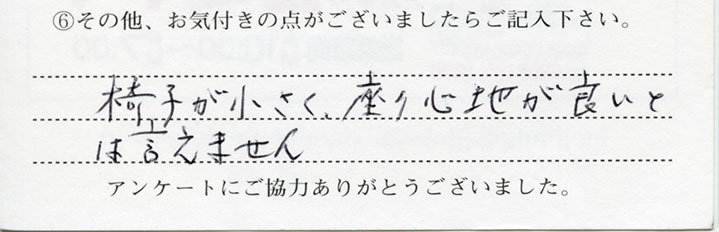 ⑥その他、お気付きの点がございましたらご記入下さい。
椅子が小さく、座り心地が良いと
は言えません
アンケートにご協力ありがとうございました。